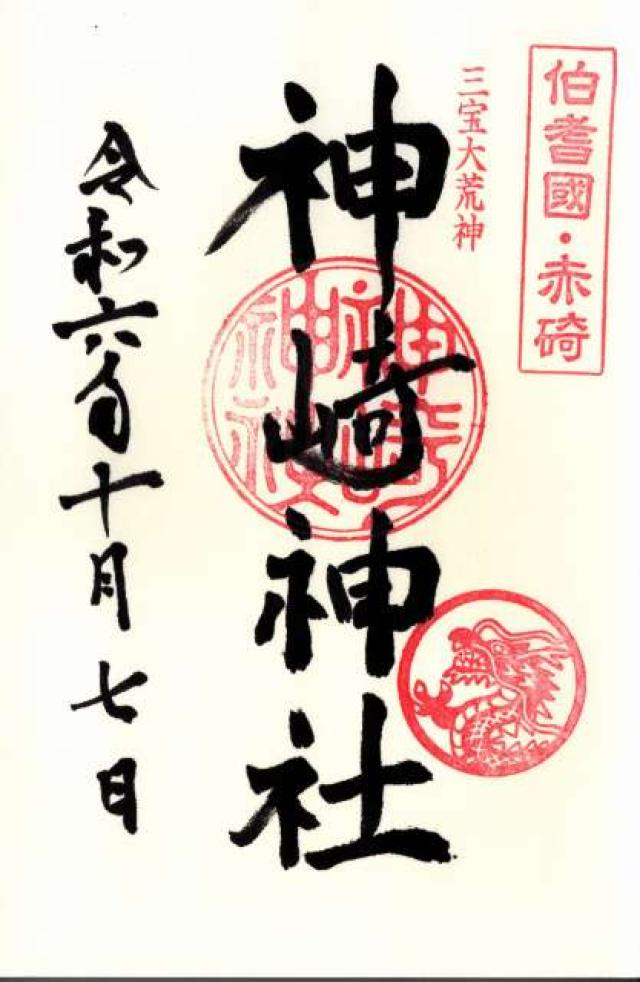 伯耆國・赤碕
三宝大荒神
神崎神社
神崎神社
令和六年十月七日